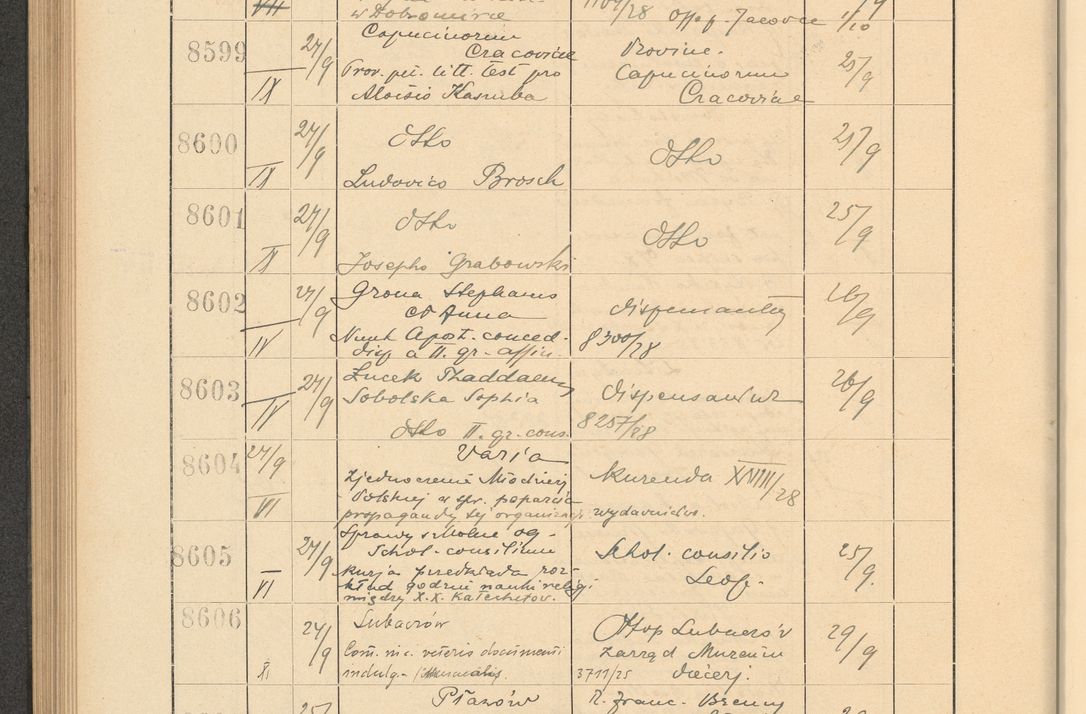 VII w Dobromierce 28 Off. f. Jacovce 1/10
8599 IX 24/9 Capucinorum Provinc. 25/9
Cracoviae Capucinorum
Prov. pet. litt. test pro Cracoviae
Aloisio Kaszuba
8600 IX 24/9 dtto dtto 25/9
Ludovico Brosch
8601 IX 24/9 dtto dtto 25/9
Josepho Grabowski
8602 IV 24/9 Grona Stephanus dispensantur 26/9
et Anna
Nunt Apost. conced. 8300/28
disp a II. gr. affin.
8603 IV 24/9 Lucek Thaddaeus dispensantur 26/9
Sobolska Sophia
dtto II. gr. cons. 8257/28
8604 VI 24/9 Varia
Zjednoczenie Młodzieży Kurenda XVIII/28
Polskiej w spr. poparcia
propagandy tej organizacji wydawnictw.
8605 VI 24/9 Sprawy szkolne og- 25/9
Schol. consilium Schol. consilio
Kurja przedkłada roz- Leop.
kład godzin nauki religji
między X.X. Katechetów.
8606 XI 24/9 Lubaczów Ottop Lubaczów 29/9
Com. nic. veteris documenti Zarząd Muzeum
indulg. 3711/25 diecezj.
25 Płazów R. Franc.